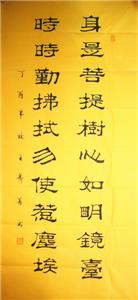 身是菩提樹心如明鏡臺
時時勤拂拭勿使惹塵埃
丁酉年秋